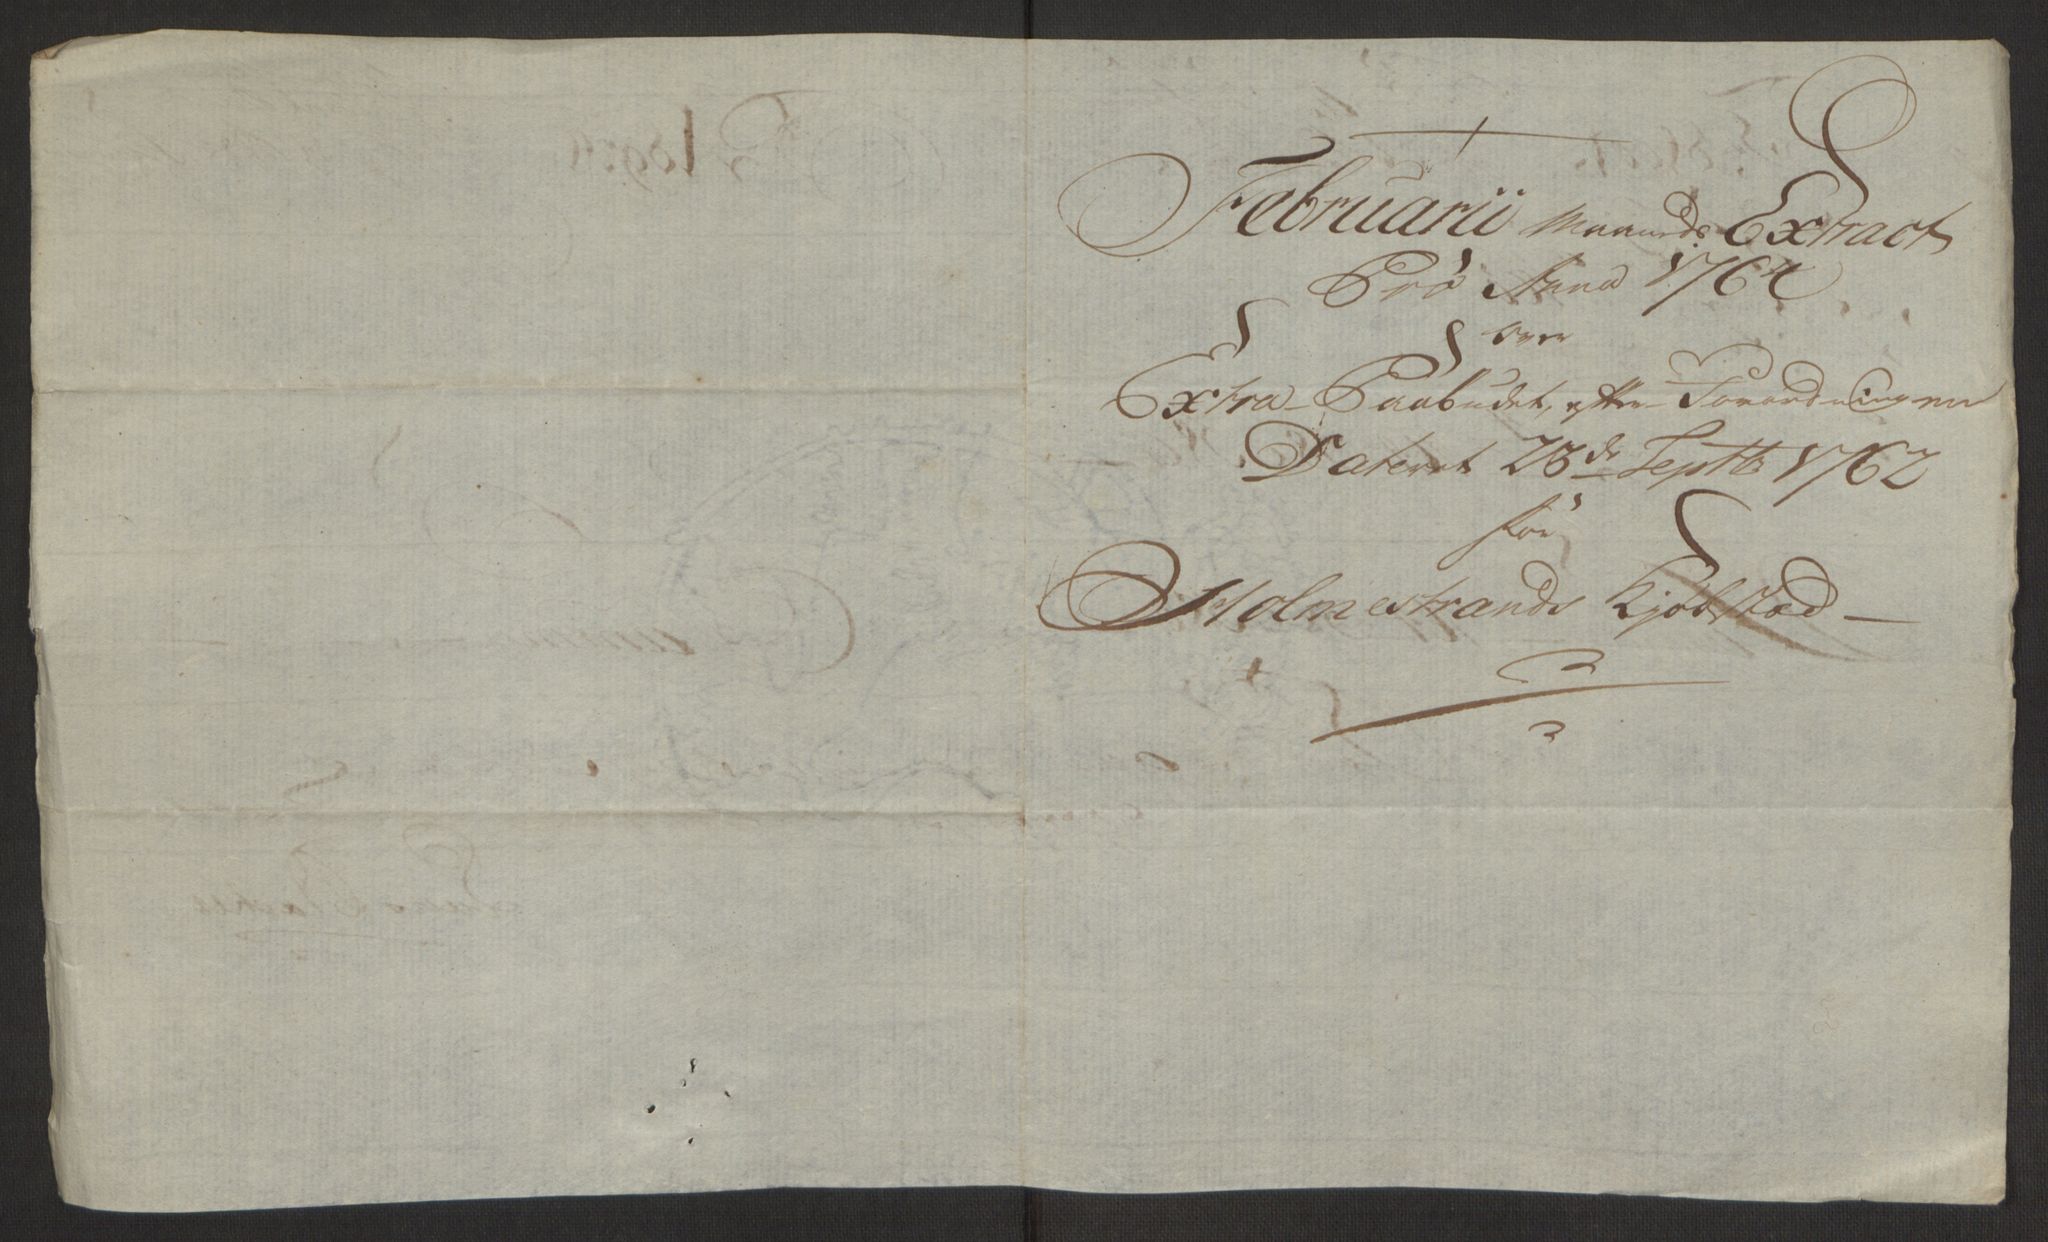 Februarii Maaneds Extract
Pro Anno 1764
over
Extra-Paabudet, efter Forordningen
Dateret 23de Septbr 1762
for
Holmestrands Kjøbstæd